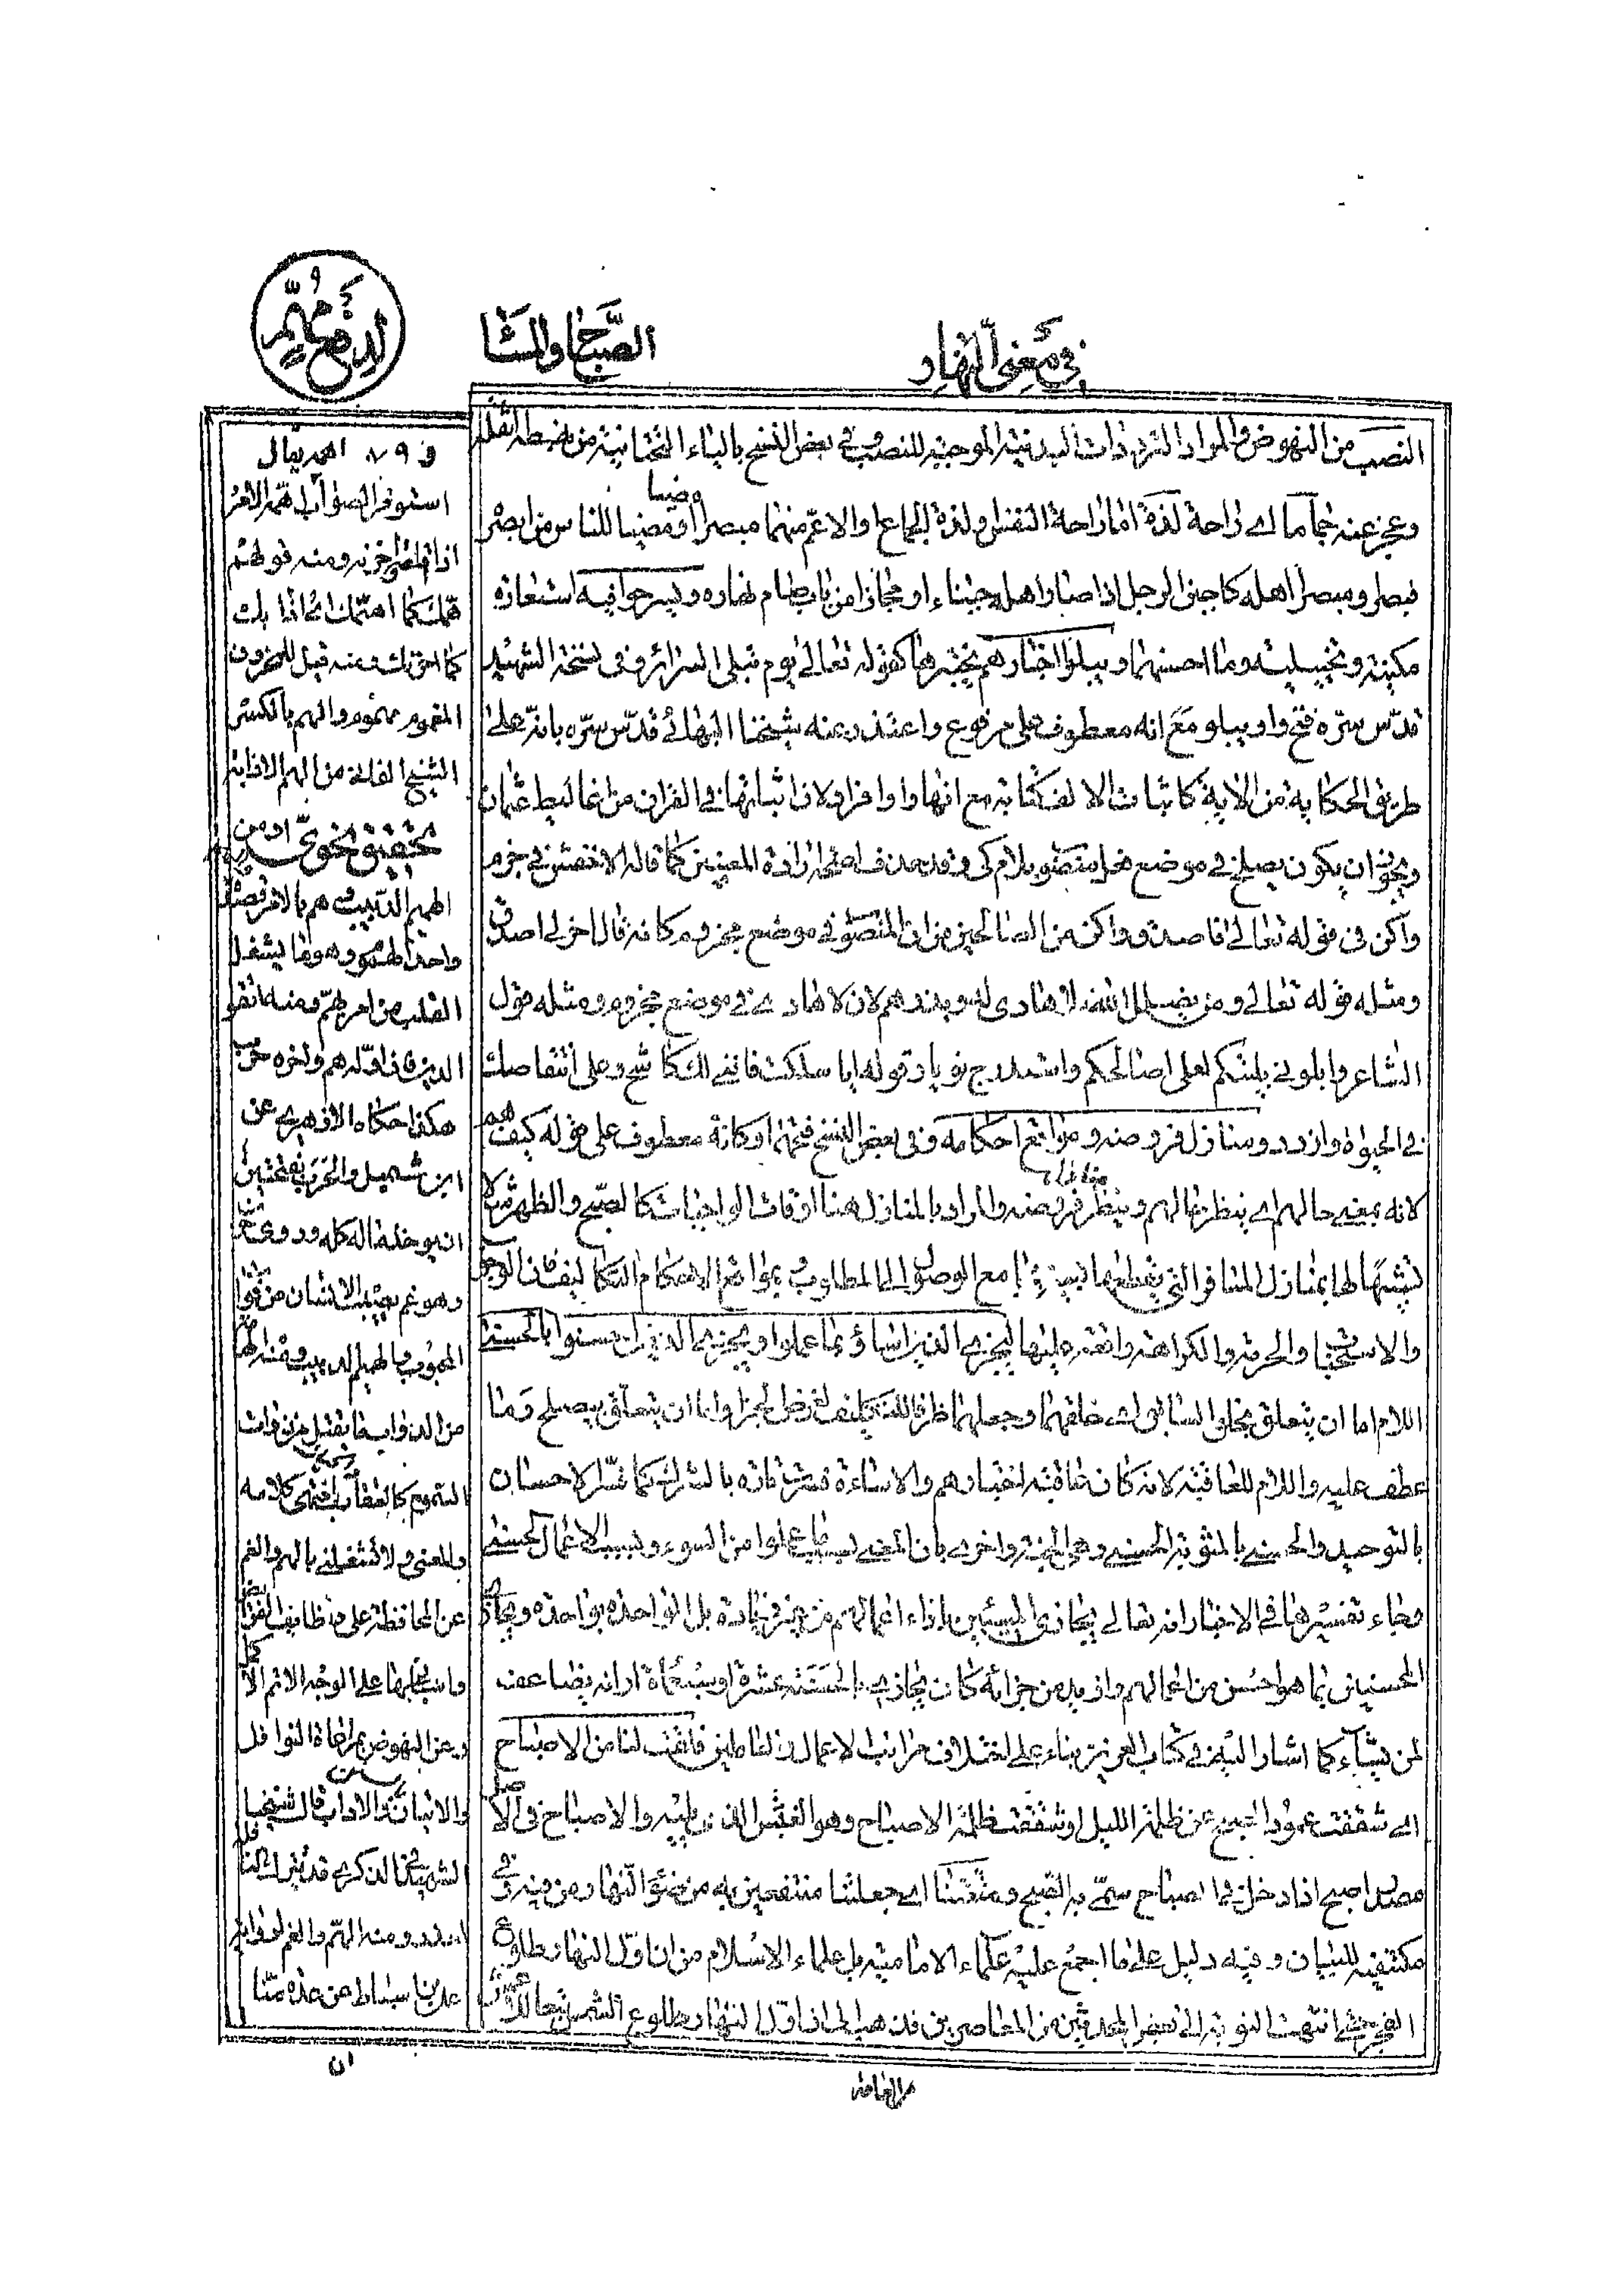 في معنى النهار
الصباح والمساء
لدفع مهم
النصب من النهوض والمراد التردادات البدنية الموجبة للنصب وفي بعض النسخ بالياء التحتانية من بهضه اثقله
وعجز عنه جماما اي راحة لذة اما راحة النفس ولذة الجماع والاعم منهما مبصرا او مضيئا للناس من ابصره
فبصر ومبصرا اهله كاجبن الرجل اذا صار اهله جبناء او مجازا من باب صام نهاره ويسرحوا فيه استعارة
مكنية وتخييلية وما احسنهما ويبلوا اخبارهم يختبرها كقوله تعالى يوم تبلى السرائر وفي نسخة الشهيد
قدس سره فتح واو يبلو مع انه معطوف على مرفوع واعتذر عنه شيخنا البهائي قدس سره بانه على
طريق الحكاية من الاية كاثبات الالف كتابة مع انها واو افراد لان اثباتها في القران من اغاليط عثمان
ويجوز ان يكون يصلح في موضع فعل منصوب بلام كي
وأكن في قوله تعالى فاصدق واكن من الصالحين من ان المنصوب في موضع مجزوم كانه قال اخرني اصدق
ومثله قوله تعالى ومن يضلل الله فلا هادي له ويذرهم لان لا هادي في موضع مجزوم ومثله قول
الشاعر وابلوني بليتكم لعلي اصالحكم واستدرج نويا وقوله ايا سلكت فانني لك كاشح وعلى انتقاصك
في الحيوة وازدد ومنازل فروضه ومواقع احكامه وفي بعض النسخ فتحها وكانه معطوف على قوله كيف هم
لانه بمعنى حالهم اي ينظر حالهم وينظر منازل فروضه والمراد بالمنازل هنا اوقات الواجبات كالصبح والظهر مثلا
تشبيها لها بمنازل المسافر التي يقطعها مع الوصول الى المطلوب وبمواقع الاحكام التكاليف فان الوجوب
والاستحباب والحرمة والكراهة واقعة عليها ليجزي الذين اساؤا بما عملوا ويجزي الذين احسنوا بالحسنى
اللام اما ان يتعلق بخلق السابق اي خلقهما وجعلهما ظرفا للتكليف لغرض الجزاء واما ان يتعلق بيصلح وما
عطف عليه واللام للعاقبة لانه كان عاقبة اختبارهم والاساءة فسرت تارة بالشرك كما فسر الاحسان
بالتوحيد والحسنى بالمثوبة الحسنى وهي الجنة واخرى بان المعنى بسبب ما عملوا من السوء وبسبب الاعمال الحسنى
وجاء تفسيرها في الاخبار انه تعالى يجازي المسيئين بازاء اعمالهم من غير زيادة بل الواحدة بواحدة ويجازي
المحسنين بما هو احسن من اعمالهم وازيد من جزائه كان يجازي بالحسنة عشرة او سبعمأة او انه يضاعف
لمن يشآء كما اشار اليه في كتابه العزيز بناء على اختلاف مراتب الاعمال والعاملين فلقت لنا من الاصباح
اي شققت عمود الصبح عن ظلمة الليل او شققت ظلمة الاصباح وهو الغبش الذي يليه والاصباح في الاصل
مصدر اصبح اذا دخل في الصباح سمي به الصبح ومتعتنا اي جعلتنا منتفعين به من ضوء النهار ومن فيه وفي
مكتنفيه للبيان وفيه دليل على ما اجمع عليه علماء الامامية بل علماء الاسلام من ان اول النهار طلوع
الفجر حتى انتهت النوبة الى بعض المحدثين من المعاصرين فذهب الى ان اول النهار طلوع الشمس تبعا
من العامة
استوفز الصواب همه الامر
اذا اقلقه واحزنه ومنه قولهم
همك ما اهمك اي اذابك
ما احزنك ومنه قيل للمحزون
المغموم مهموم والهم بالكسر
الشيخ الفاني من الهم الاذابة
تحقيق نحوي او من
الهميم الدبيب وهم بالامر قصده
واحد الهموم وهو ما يشغل
القلب من امر يهم ومنه اتقوا
الدين فان اوله هم واخره حرب
هكذا حكاه الازهري عن
ابن شميل والحرب بفتحتين
ان يوخذ ماله كله وروي
وهو غم يصيب الانسان من فوات
المحبوب والهميم الدبيب ومنه الهامة
من الدواب ما يقتل من ذوات
السموم كالعقارب انتهى كلامه
والمعنى ولا تشغلني بالهم والغم
عن المحافظة على وظائف الفرائض
والاتيان بها على الوجه الاتم الاكمل
وعن النهوض بمراعاة النوافل
والسنن والاتيان بالاداب قال شيخنا
الشهيد في الذكرى قد تترك النافلة
لعذر ومنه الهم والغم لرواية
علي بن اسباط عن عدة منا
ان